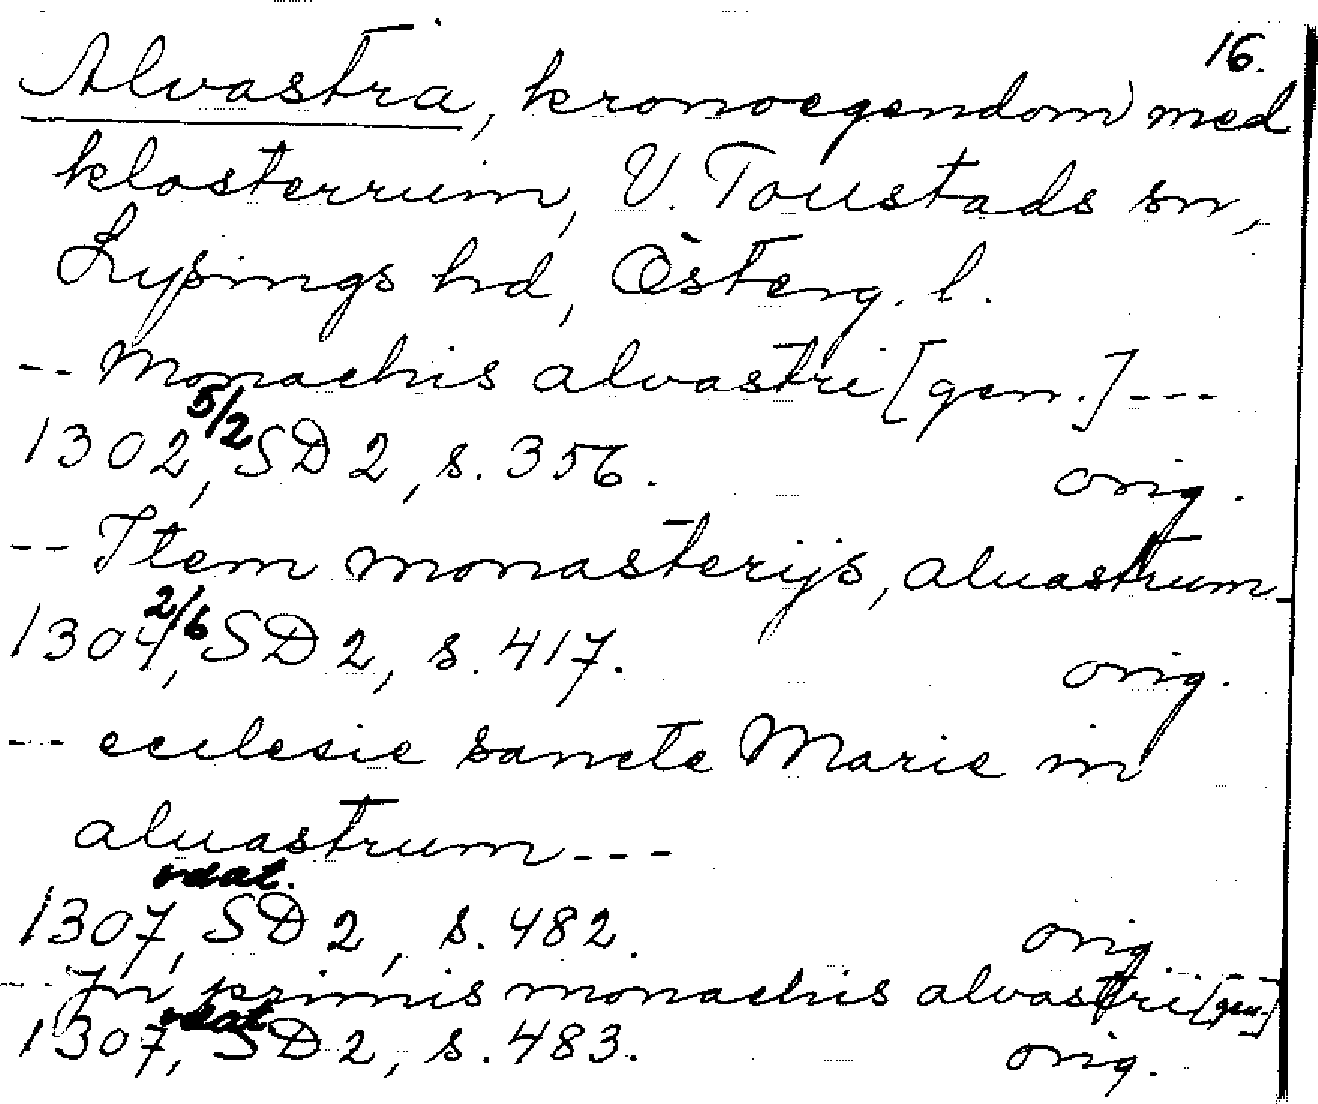 16.
Alvastra, kronoegendom med
klosterruin, V. Toustads sn,
Lysings hd, Österg. l.
-- Monachis alvastri [gen.] ---
1302 5/2, SD 2, s. 356. orig.
-- Item monasterijs, aluastrum -
1304 2/6, SD 2, s. 417. orig.
-- ecclesie sancte Marie in
aluastrum ---
odat.
1307, SD 2, s. 482. orig.
-- In primis monachis alvastri [gen.] ---
odat.
1307, SD 2, s. 483. orig.